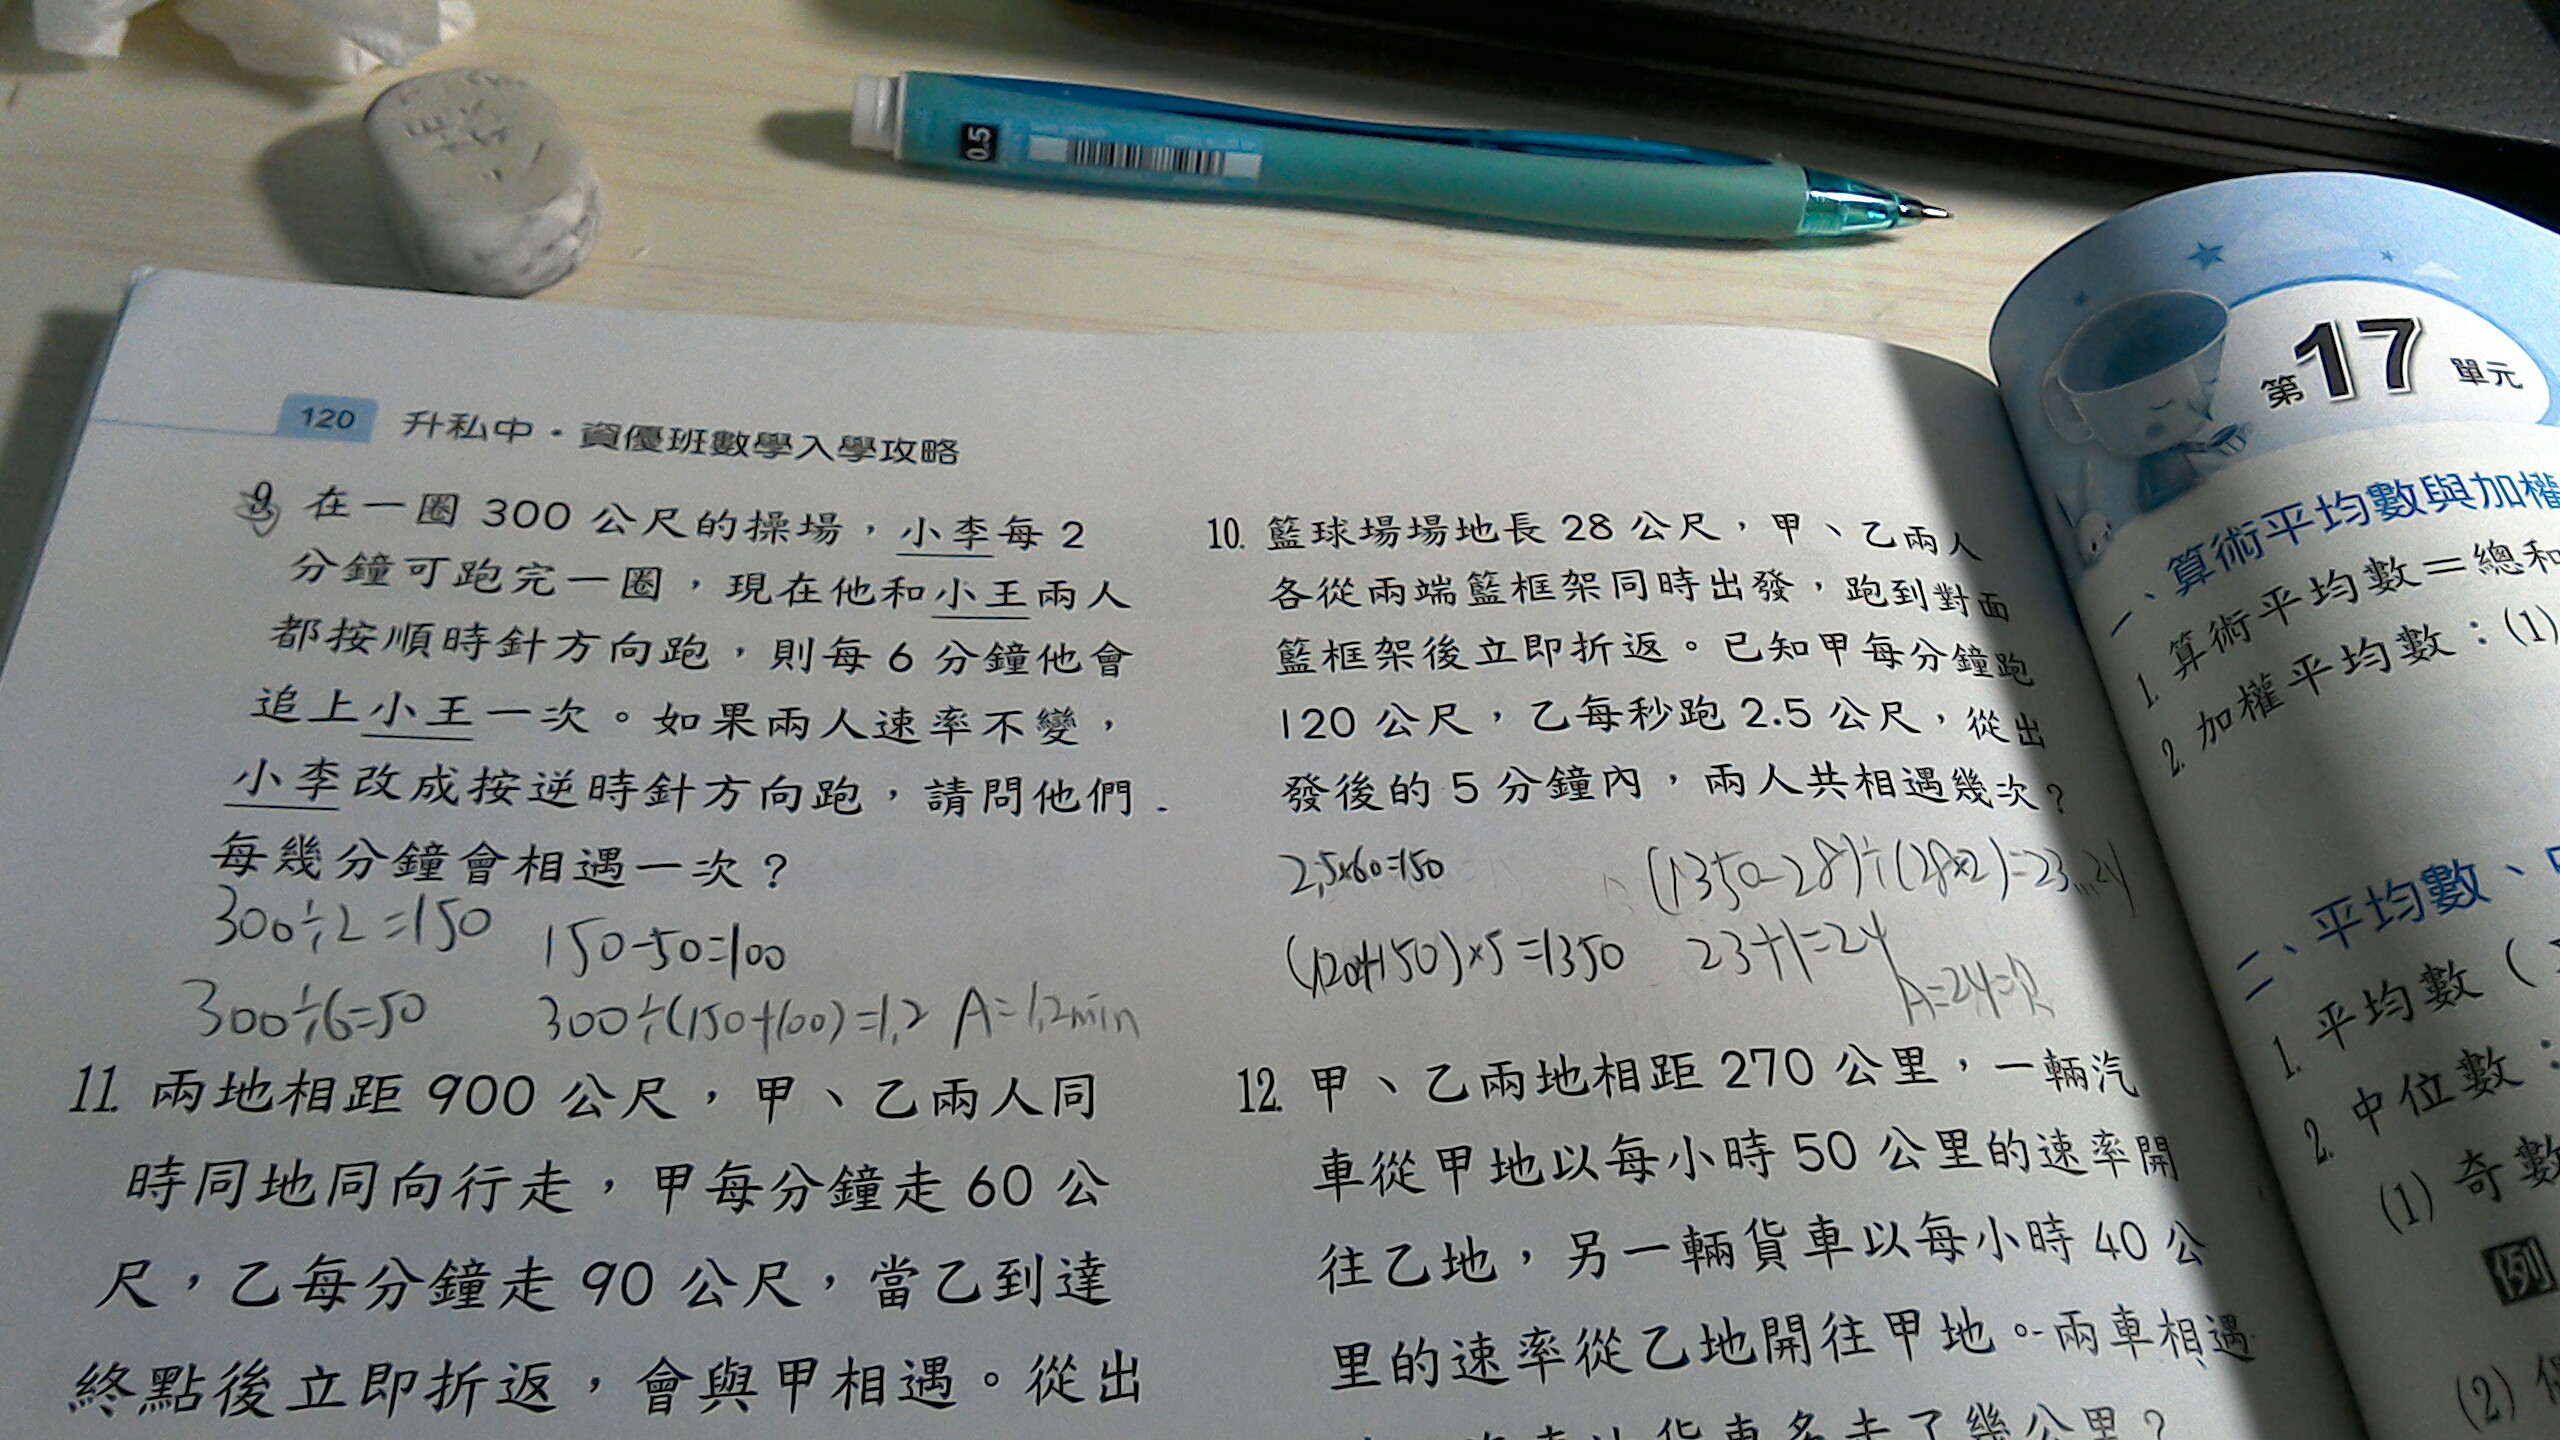 0.5
120 升私中・資優班數學入學攻略
9. 在一圈 300 公尺的操場，小李每 2
分鐘可跑完一圈，現在他和小王兩人
都按順時針方向跑，則每 6 分鐘他會
追上小王一次。如果兩人速率不變，
小李改成按逆時針方向跑，請問他們
每幾分鐘會相遇一次？
300÷2=150
150-50=100
300÷6=50
300÷(150+100)=1.2 A=1.2min
10. 籃球場場地長 28 公尺，甲、乙兩人
各從兩端籃框架同時出發，跑到對面
籃框架後立即折返。已知甲每分鐘跑
120 公尺，乙每秒跑 2.5 公尺，從出
發後的 5 分鐘內，兩人共相遇幾次？
2.5×60=150
(1350-28)÷(28×2)=23...24
(120+150)×5=1350
23+1=24
A=24=次
11. 兩地相距 900 公尺，甲、乙兩人同
時同地同向行走，甲每分鐘走 60 公
尺，乙每分鐘走 90 公尺，當乙到達
終點後立即折返，會與甲相遇。從出
12. 甲、乙兩地相距 270 公里，一輛汽
車從甲地以每小時 50 公里的速率開
往乙地，另一輛貨車以每小時 40 公
里的速率從乙地開往甲地。兩車相遇
汽車比貨車多走了幾公里？
第17單元
一、算術平均數與加權
1. 算術平均數＝總和
2. 加權平均數：(1)
二、平均數、
1. 平均數（
2. 中位數：
(1) 奇數
例
(2)